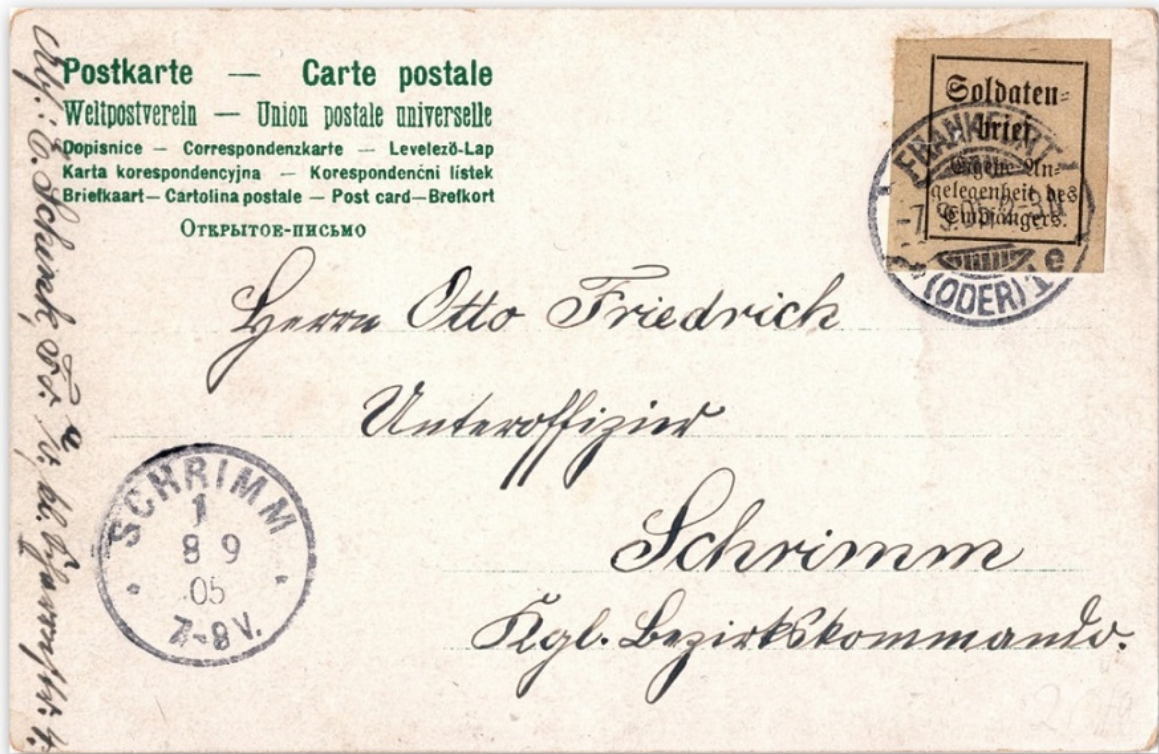 Postkarte — Carte postale
Weltpostverein — Union postale universelle
Dopisnice — Correspondenzkarte — Levelező-Lap
Karta korespondencyjna — Korespondenční lístek
Briefkaart — Cartolina postale — Post card — Brefkort
Открытое-письмо
Soldaten=
brief.
Eigene An=
gelegenheit des
Empfängers.
FRANKFURT
-7.9.05.
(ODER) 1 e
Herrn Otto Friedrich
Unteroffizier
Schrimm
Kgl. Bezirkskommando.
SCHRIMM
1
8 9
.05
7-8V.
Abs: E. Schink, Frf.